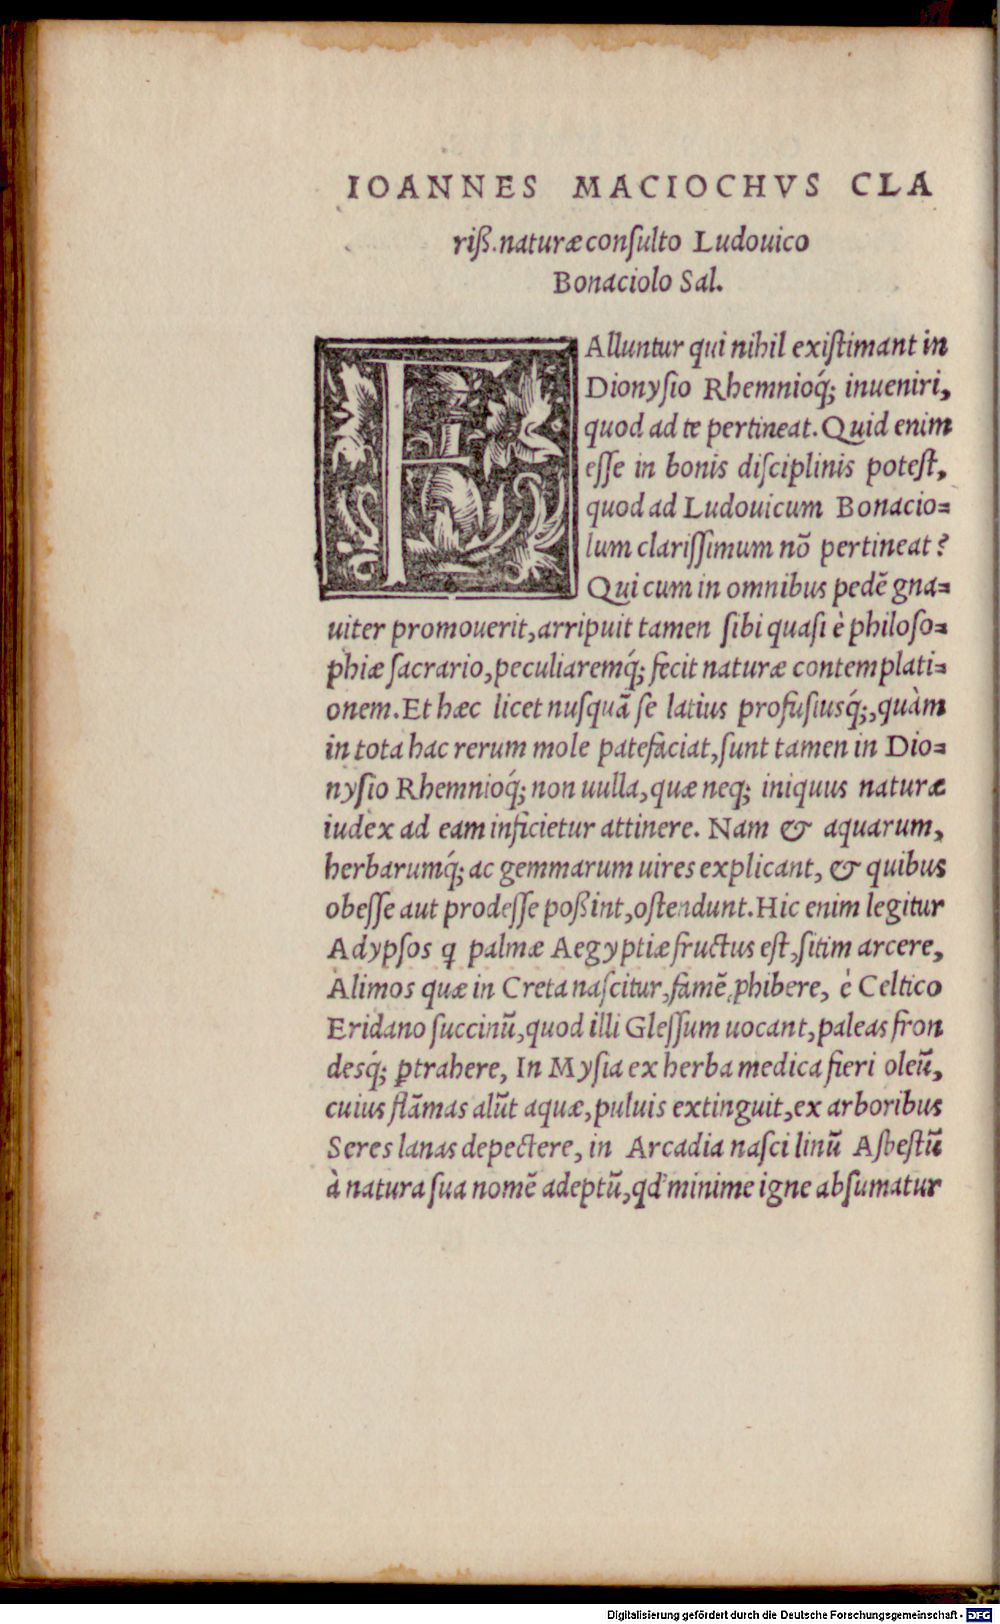 IOANNES MACIOCHVS CLA
riß. naturæ conſulto Ludouico
Bonaciolo Sal.
FAlluntur qui nihil exiſtimant in
Dionyſio Rhemnioq́; inueniri,
quod ad te pertineat. Quid enim
eſſe in bonis diſciplinis poteſt,
quod ad Ludouicum Bonacio⸗
lum clariſſimum nō pertineat?
Qui cum in omnibus pedē gna⸗
uiter promouerit, arripuit tamen ſibi quaſi è philoſo⸗
phiæ ſacrario, peculiaremq́; fecit naturæ contemplati⸗
onem. Et hæc licet nuſquā ſe latius profuſiusq́;, quàm
in tota hac rerum mole patefaciat, ſunt tamen in Dio⸗
nyſio Rhemnioq́; non uulla, quæ neq; iniquus naturæ
iudex ad eam inficietur attinere. Nam & aquarum,
herbarumq́; ac gemmarum uires explicant, & quibus
obeſſe aut prodeſſe poßint, oſtendunt. Hic enim legitur
Adypſos ꝗ palmæ Aegyptiæ fructus eſt, ſitim arcere,
Alimos quæ in Creta naſcitur, famē ꝓhibere, è Celtico
Eridano ſuccinū, quod illi Gleſſum uocant, paleas fron
desq́; ꝑtrahere, In Myſia ex herba medica fieri oleū,
cuius flāmas alūt aquæ, puluis extinguit, ex arboribus
Seres lanas depectere, in Arcadia naſci linū Aſbeſtū
à natura ſua nomē adeptū, qď minime igne abſumatur
Digitalisierung gefördert durch die Deutsche Forschungsgemeinschaft - DFG